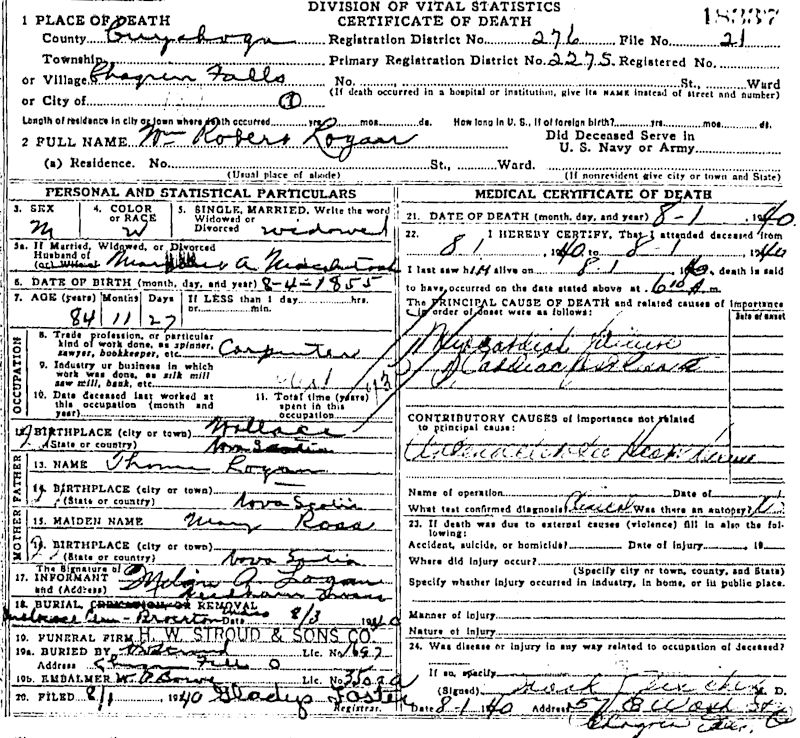 DIVISION OF VITAL STATISTICS
CERTIFICATE OF DEATH
18337
1 PLACE OF DEATH
County Cuyahoga Registration District No. 276 File No. 21
Township Primary Registration District No. 2275 Registered No.
or Village Chagrin Falls No. St., Ward
(If death occurred in a hospital or institution, give its NAME instead of street and number)
or City of
Length of residence in city or town where death occurred yrs. mos. ds. How long in U. S., if of foreign birth? yrs. mos. ds.
2 FULL NAME Wm Robert Logan Did Deceased Serve in
U. S. Navy or Army
(a) Residence. No. St., Ward.
(Usual place of abode) (If nonresident give city or town and State)
PERSONAL AND STATISTICAL PARTICULARS
3. SEX M
4. COLOR or RACE W
5. SINGLE, MARRIED, Write the word
Widowed or
Divorced widowed
5a. If Married, Widowed, or Divorced
Husband of A.
(or) Wife of
6. DATE OF BIRTH (month, day, and year) 8-4-1855
7. AGE (years) Months Days If LESS than 1 day hrs.
or min.
84 11 27
OCCUPATION
8. Trade profession, or particular
kind of work done, as spinner,
sawyer, bookkeeper, etc. Carpenter
9. Industry or business in which
work was done, as silk mill
saw mill, bank, etc.
10. Date deceased last worked at
this occupation (month and
year)
11. Total time (years)
spent in this
occupation
12. BIRTHPLACE (city or town) Wallace
(State or country) Nova Scotia
FATHER
13. NAME Logan
14. BIRTHPLACE (city or town)
(State or country) Nova Scotia
MOTHER
15. MAIDEN NAME Mary Ross
16. BIRTHPLACE (city or town)
(State or country) Nova Scotia
The Signature of
17. INFORMANT A. Logan
and (Address) Needham
18. BURIAL, CREMATION OR REMOVAL
Brockton Mass Date 8/3 1940
19. FUNERAL FIRM H. W. STROUD & SONS CO.
19a. BURIED BY Stroud Lic. No.
Address Chagrin Falls O
19b. EMBALMER W. A. Lic. No.
20. FILED 8/1 1940 Gladys Foster
Registrar.
MEDICAL CERTIFICATE OF DEATH
21. DATE OF DEATH (month, day, and year) 8-1 1940.
22. I HEREBY CERTIFY, That I attended deceased from
8 1 1940 to 8-1 1940
I last saw him alive on 8 1 1940, death is said
to have occurred on the date stated above at m.
The PRINCIPAL CAUSE OF DEATH and related causes of importance
in order of onset were as follows: Date of onset
Myocardial
Cardiac
CONTRIBUTORY CAUSES of importance not related
to principal cause:
Heart
Name of operation Date of
What test confirmed diagnosis Was there an autopsy?
23. If death was due to external causes (violence) fill in also the fol-
lowing:
Accident, suicide, or homicide? Date of injury 19
Where did injury occur?
(Specify city or town, county, and State)
Specify whether injury occurred in industry, in home, or in public place.
Manner of injury
Nature of injury
24. Was disease or injury in any way related to occupation of deceased?
If so, specify
(Signed) M. D.
Date 8-1 1940 Address 57 E Wash St
Chagrin